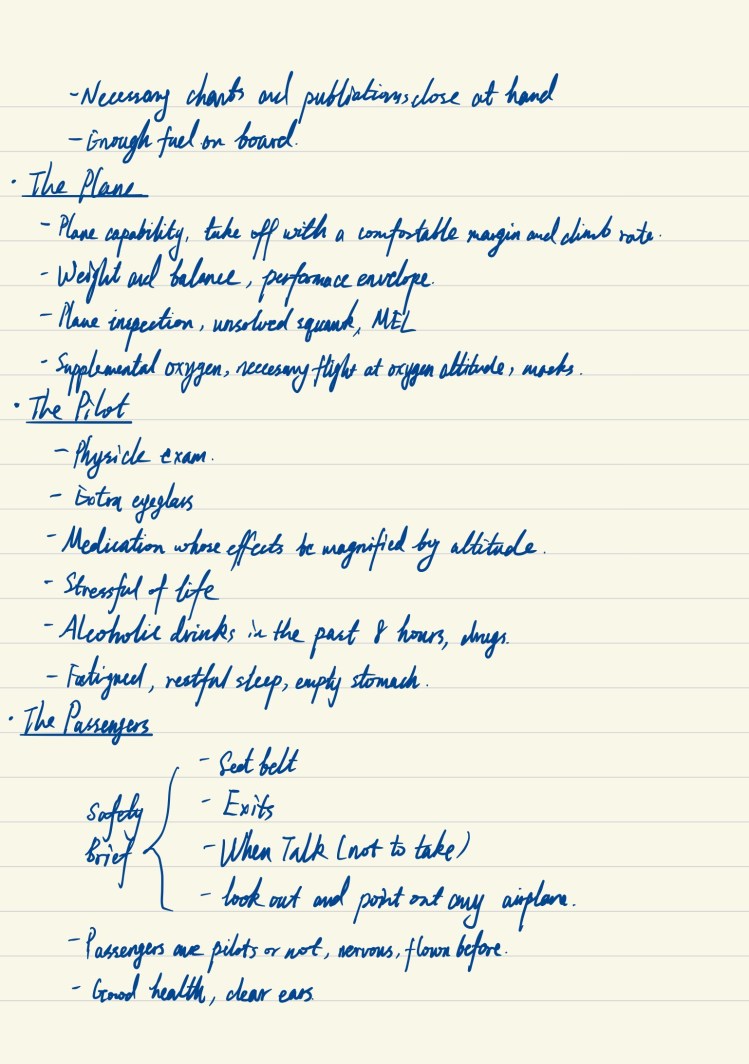 - Necessary charts and publiations, close at hand
- Enough fuel on board.
· The Plane
- Plane capability, take off with a comfortable margin and climb rate.
- Weight and balance, performace envelope.
- Plane inspection, unsolved squawk, MEL
- Supplemental oxygen, neccesary flight at oxygen altitude, masks.
· The Pilot
- Physicle exam.
- Extra eyeglass
- Medication whose effects be magnified by altitude.
- Stressful of life
- Alcoholic drinks in the past 8 hours, drugs.
- Fatigued, restful sleep, empty stomach.
· The Passengers
Safety
brief
- Seat belt
- Exits
- When Talk (not to take)
- look out and point out any airplane.
- Passengers are pilots or not, nervous, flown before.
- Good health, clear ears.